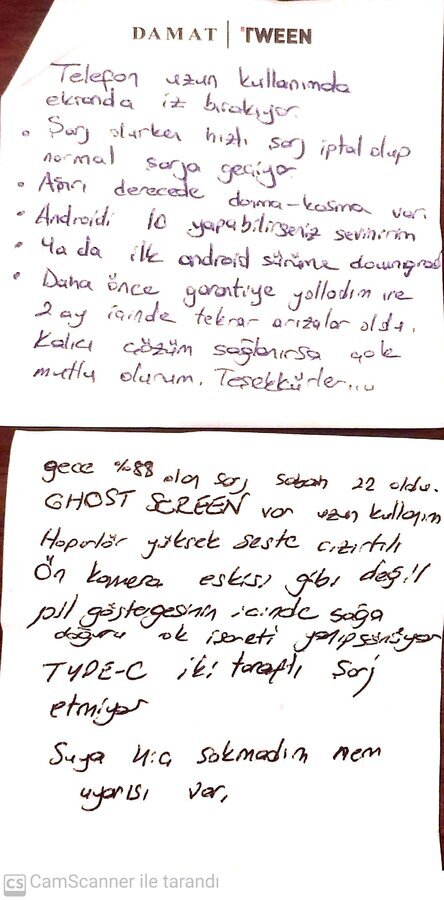 DAMAT | TWEEN
Telefon uzun kullanımda
ekranda iz bırakıyor.
• Şarj olurken hızlı şarj iptal olup
normal şarja geçiyor
• Aşırı derecede donma-kasma var.
• Androidi 10 yapabilirseniz sevinirim
• Ya da ilk android sürüme downgrad
• Daha önce garantiye yolladım ve
2 ay içinde tekrar arızalar oldu.
Kalıcı çözüm sağlanırsa çok
mutlu olurum. Teşekkürler...
gece %88 olan şarj sabah 22 oldu.
GHOST SCREEN var uzun kullanım
Hoparlör yüksek seste cızırtılı
Ön kamera eskisi gibi değil
pil göstergesinin içinde sağa
doğru ok işareti yanıp sönüyor
TYPE-C iki taraflı şarj
etmiyor
Suya hiç sokmadım nem
uyarısı var,
CS CamScanner ile tarandı